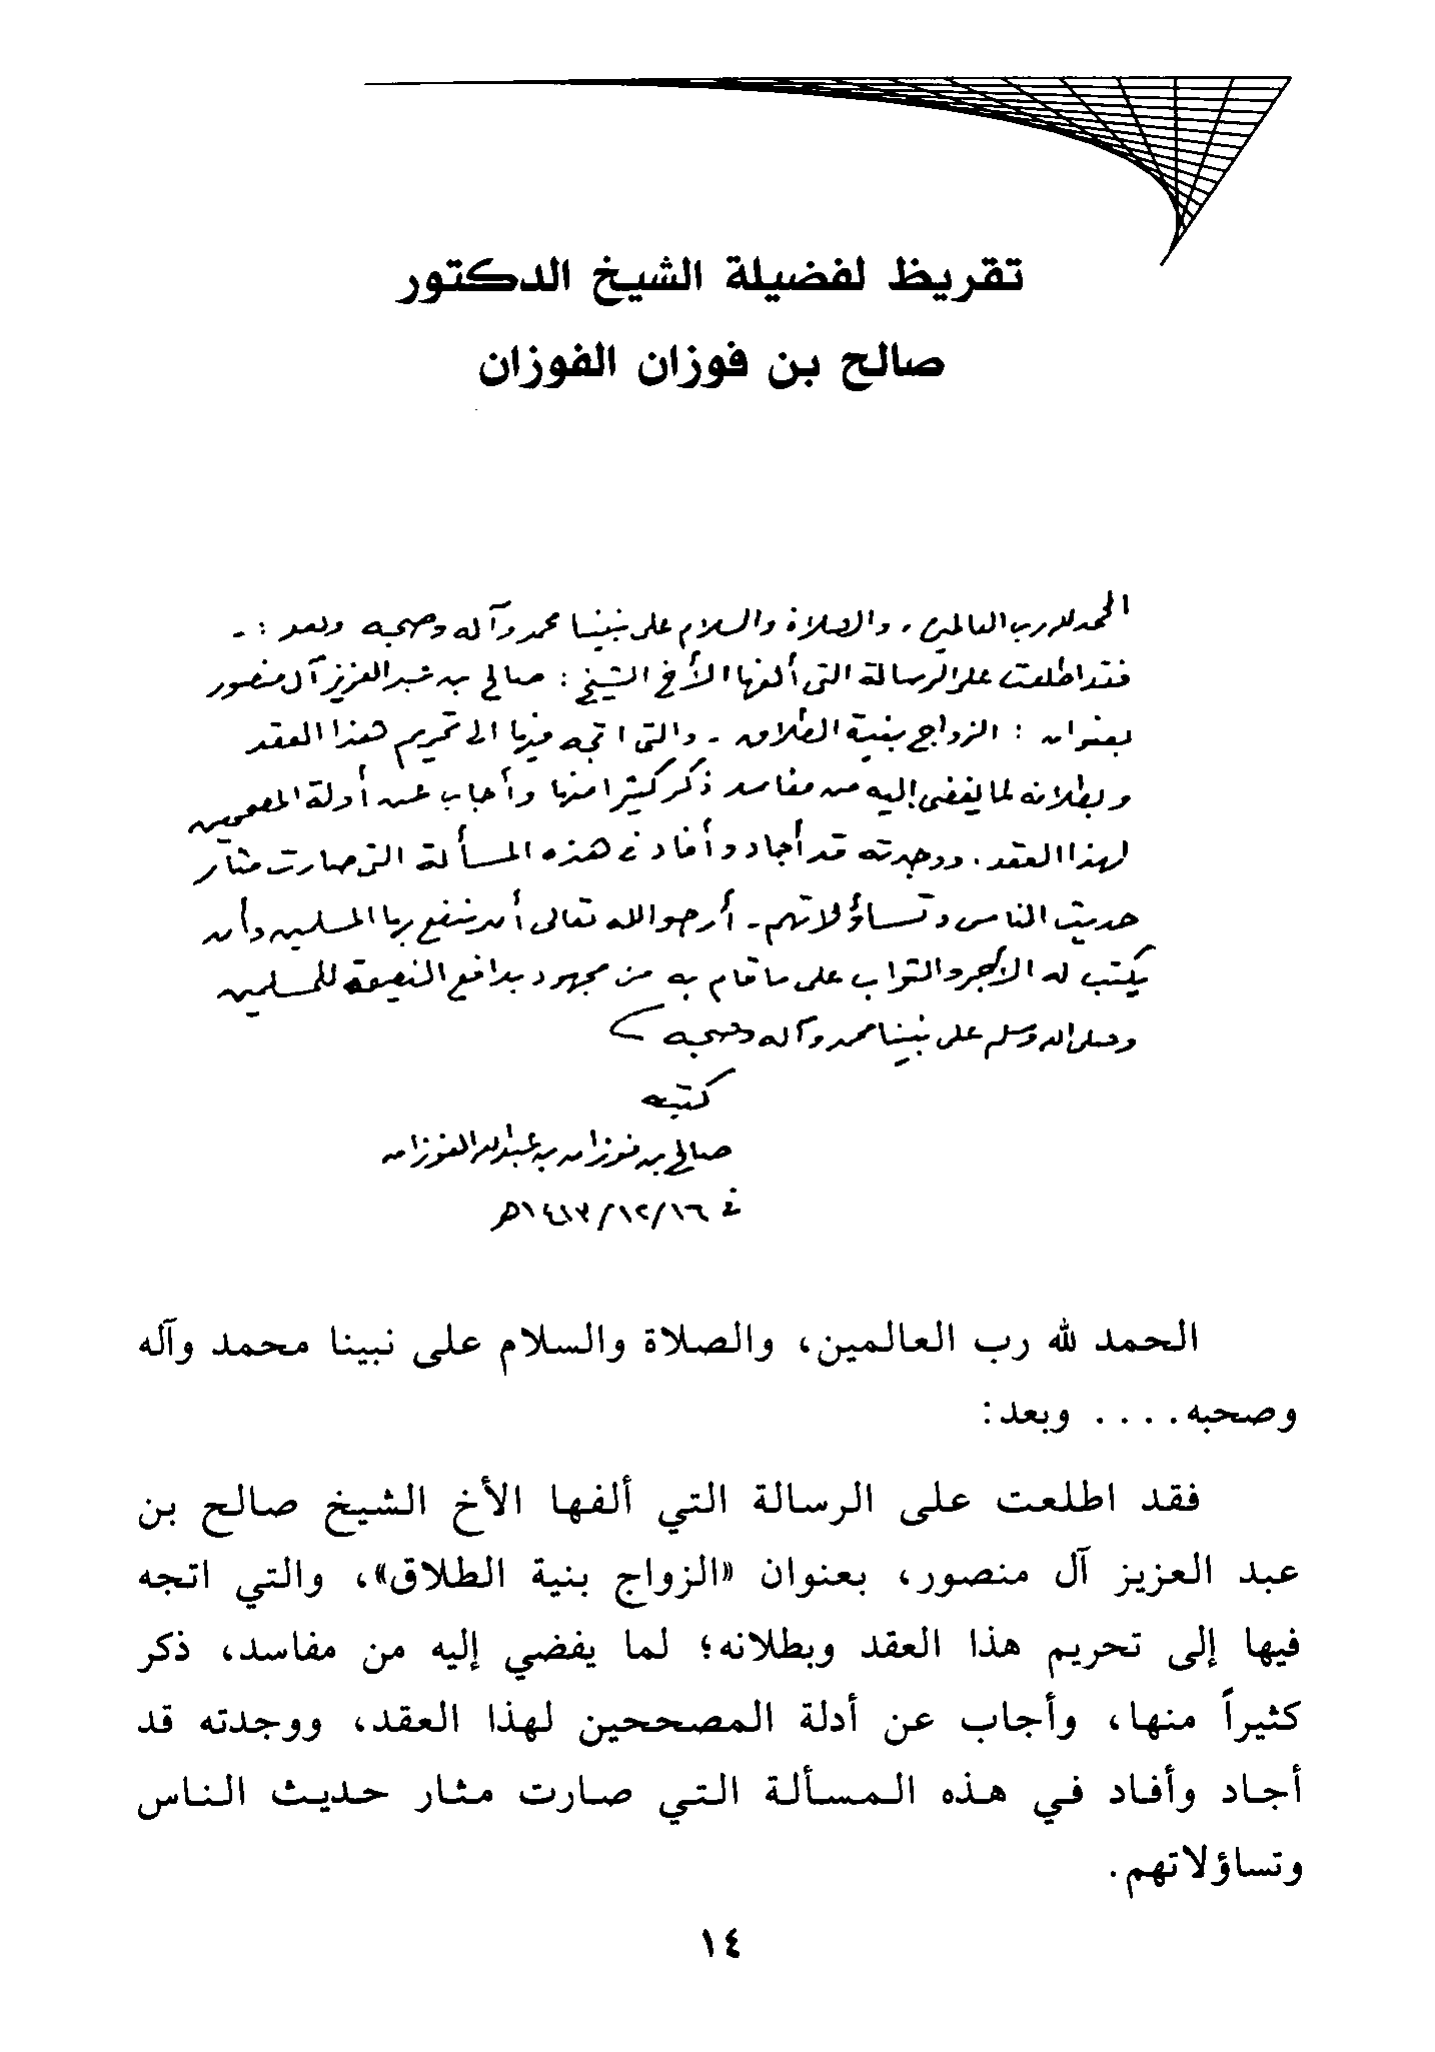 تقريظ لفضيلة الشيخ الدكتور
صالح بن فوزان الفوزان
الحمد لله رب العالمين، والصلاة والسلام على نبينا محمد وآله وصحبه وبعد :-
فقد اطلعت على الرسالة التي ألفها الأخ الشيخ : صالح بن عبد العزيز آل منصور
بعنوان : الزواج بنية الطلاق - والتي اتجه فيها الى تحريم هذا العقد
وبطلانه لما يفضي إليه من مفاسد ذكر كثيرا منها وأجاب عن أدلة المصححين
لهذا العقد. ووجدته قد أجاد وأفاد في هذه المسألة التي صارت مثار
حديث الناس وتساؤلاتهم - أرجو الله تعالى أن ينفع بها المسلمين وأن
يكتب له الأجر والثواب على ما قام به من مجهود بدافع النصيحة للمسلمين
وصلى الله وسلم على نبينا محمد وآله وصحبه
كتبه
صالح بن فوزان بن عبد الله الفوزان
في ١٤١٣/١٢/١٦هـ
الحمد لله رب العالمين، والصلاة والسلام على نبينا محمد وآله
وصحبه.... وبعد:
فقد اطلعت على الرسالة التي ألفها الأخ الشيخ صالح بن
عبد العزيز آل منصور، بعنوان «الزواج بنية الطلاق»، والتي اتجه
فيها إلى تحريم هذا العقد وبطلانه؛ لما يفضي إليه من مفاسد، ذكر
كثيراً منها، وأجاب عن أدلة المصححين لهذا العقد، ووجدته قد
أجاد وأفاد في هذه المسألة التي صارت مثار حديث الناس
وتساؤلاتهم.
١٤